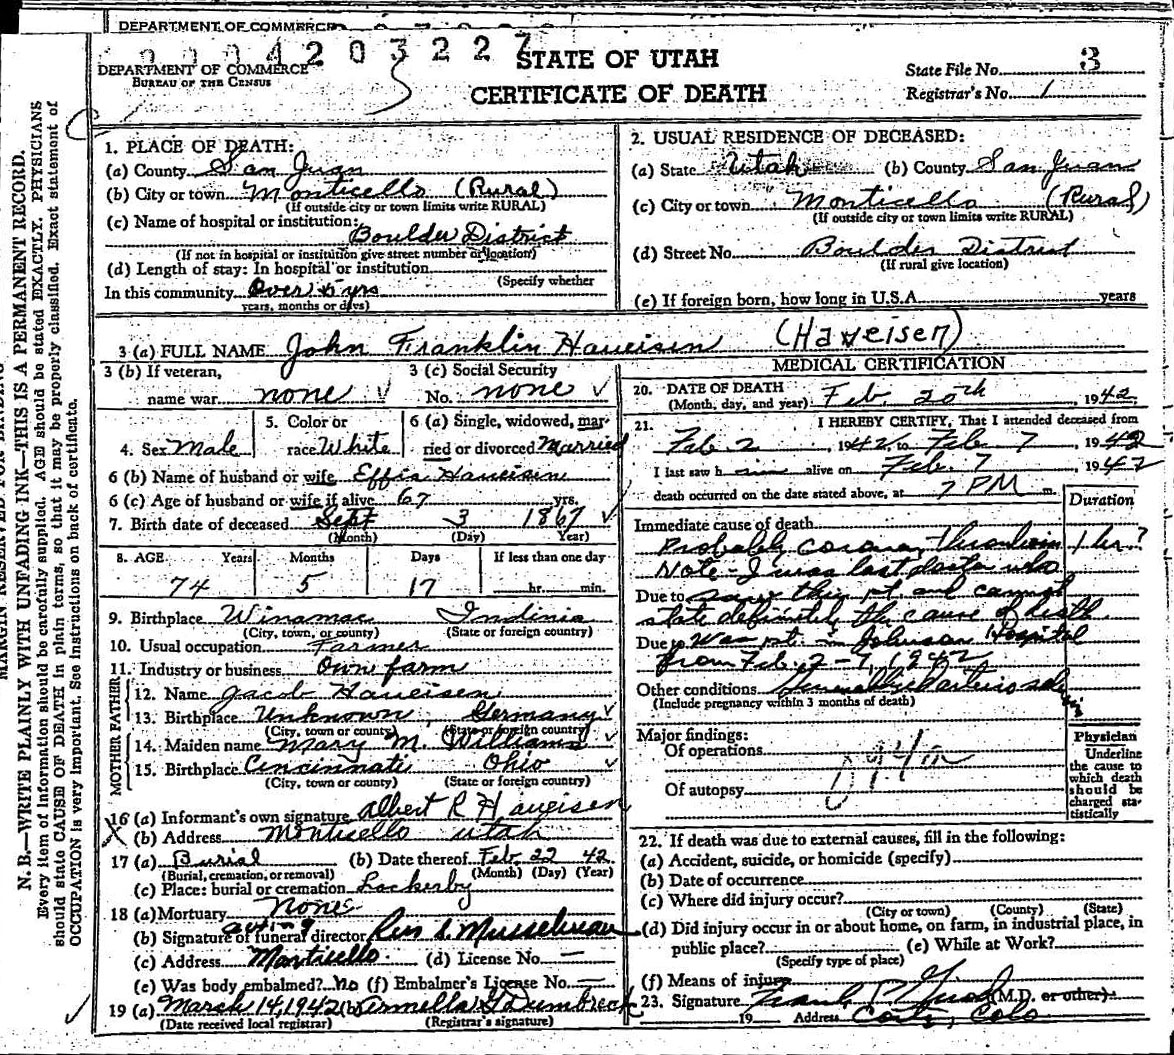 DEPARTMENT OF COMMERCE
0004203227
DEPARTMENT OF COMMERCE
BUREAU OF THE CENSUS
STATE OF UTAH
CERTIFICATE OF DEATH
State File No. 3
Registrar's No. 1
MARGIN RESERVED FOR BINDING
N. B.—WRITE PLAINLY WITH UNFADING INK—THIS IS A PERMANENT RECORD.
Every item of information should be carefully supplied. AGE should be stated EXACTLY. PHYSICIANS
should state CAUSE OF DEATH in plain terms, so that it may be properly classified. Exact statement of
OCCUPATION is very important. See instructions on back of certificate.
1. PLACE OF DEATH:
(a) County San Juan
(b) City or town Monticello (Rural)
(If outside city or town limits write RURAL)
(c) Name of hospital or institution:
Boulder District
(If not in hospital or institution give street number or location)
(d) Length of stay: In hospital or institution
(Specify whether
In this community Over 5 yrs
years, months or days)
2. USUAL RESIDENCE OF DECEASED:
(a) State Utah (b) County San Juan
(c) City or town Monticello (Rural)
(If outside city or town limits write RURAL)
(d) Street No. Boulder District
(If rural give location)
(e) If foreign born, how long in U.S.A. years
3 (a) FULL NAME John Franklin Haueisen (Haveisen)
3 (b) If veteran, 3 (c) Social Security
name war none No. none
4. Sex Male
5. Color or
race White
6 (a) Single, widowed, mar-
ried or divorced Married
6 (b) Name of husband or wife Effie Haueisen
6 (c) Age of husband or wife if alive 67 yrs.
7. Birth date of deceased Sept 3 1867
(Month) (Day) Year)
8. AGE Years Months Days If less than one day
74 5 17 hr. min.
9. Birthplace Winamac Indinia
(City, town, or county) (State or foreign country)
10. Usual occupation Farmer
11. Industry or business Own farm
FATHER
12. Name Jacob Haueisen
13. Birthplace Unknown, Germany
(City, town or county) (State or foreign country)
MOTHER
14. Maiden name Mary M. Williams
15. Birthplace Cencinnate Ohio
(City, town or county) (State or foreign country)
16 (a) Informant's own signature Albert R Haueisen
X (b) Address Monticello Utah
17 (a) Burial (b) Date thereof Feb 22 42
(Burial, cremation, or removal) (Month) (Day) (Year)
(c) Place: burial or cremation Lockerby
18 (a) Mortuary None
acting
(b) Signature of funeral director Musselman
(c) Address Monticello (d) License No. —
(e) Was body embalmed? No (f) Embalmer's License No. —
19 (a) March 14, 1942 (b) Armella G Dumbreck
(Date received local registrar) (Registrar's signature)
MEDICAL CERTIFICATION
20. DATE OF DEATH
(Month, day, and year) Feb. 20th, 1942
21. I HEREBY CERTIFY, That I attended deceased from
Feb 2, 1942, to Feb. 7 1942
I last saw him alive on Feb. 7, 1942
death occurred on the date stated above, at 7 PM m.
Duration
Immediate cause of death
Probably coronary thrombosis 1 hr?
Note - I was last doctor who
Due to saw this pt. and cannot
state definitely the cause of death
Due to Was pt. in Johnson Hospital
from Feb. 2-7, 1942
Other conditions Generalized arteriosclerosis
(Include pregnancy within 3 months of death)
Major findings:
Of operations
Of autopsy
Physician
Underline
the cause to
which death
should be
charged sta-
tistically
22. If death was due to external causes, fill in the following:
(a) Accident, suicide, or homicide (specify)
(b) Date of occurrence
(c) Where did injury occur?
(City or town) (County) (State)
(d) Did injury occur in or about home, on farm, in industrial place, in
public place? (e) While at Work?
(Specify type of place)
(f) Means of injury
23. Signature Frank P. (M.D. or other)
19 Address Cortez, Colo